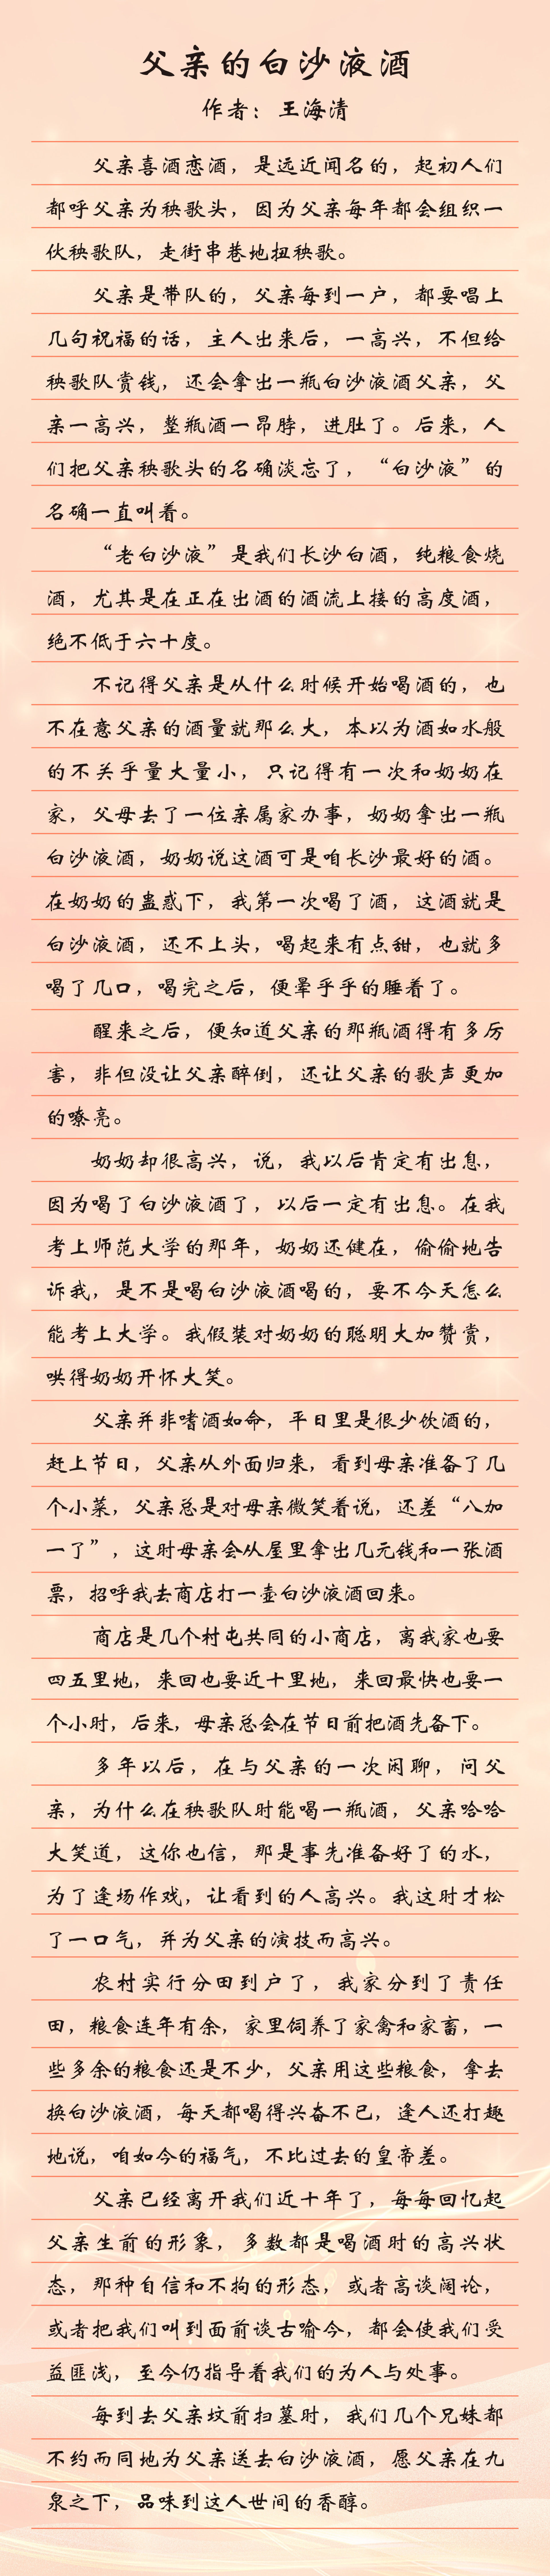 父亲的白沙液酒
作者：王海清
父亲喜酒恋酒，是远近闻名的，起初人们
都呼父亲为秧歌头，因为父亲每年都会组织一
伙秧歌队，走街串巷地扭秧歌。
父亲是带队的，父亲每到一户，都要唱上
几句祝福的话，主人出来后，一高兴，不但给
秧歌队赏钱，还会拿出一瓶白沙液酒父亲，父
亲一高兴，整瓶酒一昂脖，进肚了。后来，人
们把父亲秧歌头的名确淡忘了，“白沙液”的
名确一直叫着。
“老白沙液”是我们长沙白酒，纯粮食烧
酒，尤其是在正在出酒的酒流上接的高度酒，
绝不低于六十度。
不记得父亲是从什么时候开始喝酒的，也
不在意父亲的酒量就那么大，本以为酒如水般
的不关乎量大量小，只记得有一次和奶奶在
家，父母去了一位亲属家办事，奶奶拿出一瓶
白沙液酒，奶奶说这酒可是咱长沙最好的酒。
在奶奶的蛊惑下，我第一次喝了酒，这酒就是
白沙液酒，还不上头，喝起来有点甜，也就多
喝了几口，喝完之后，便晕乎乎的睡着了。
醒来之后，便知道父亲的那瓶酒得有多厉
害，非但没让父亲醉倒，还让父亲的歌声更加
的嘹亮。
奶奶却很高兴，说，我以后肯定有出息，
因为喝了白沙液酒了，以后一定有出息。在我
考上师范大学的那年，奶奶还健在，偷偷地告
诉我，是不是喝白沙液酒喝的，要不今天怎么
能考上大学。我假装对奶奶的聪明大加赞赏，
哄得奶奶开怀大笑。
父亲并非嗜酒如命，平日里是很少饮酒的，
赶上节日，父亲从外面归来，看到母亲准备了几
个小菜，父亲总是对母亲微笑着说，还差“八加
一了”，这时母亲会从屋里拿出几元钱和一张酒
票，招呼我去商店打一壶白沙液酒回来。
商店是几个村屯共同的小商店，离我家也要
四五里地，来回也要近十里地，来回最快也要一
个小时，后来，母亲总会在节日前把酒先备下。
多年以后，在与父亲的一次闲聊，问父
亲，为什么在秧歌队时能喝一瓶酒，父亲哈哈
大笑道，这你也信，那是事先准备好了的水，
为了逢场作戏，让看到的人高兴。我这时才松
了一口气，并为父亲的演技而高兴。
农村实行分田到户了，我家分到了责任
田，粮食连年有余，家里饲养了家禽和家畜，一
些多余的粮食还是不少，父亲用这些粮食，拿去
换白沙液酒，每天都喝得兴奋不已，逢人还打趣
地说，咱如今的福气，不比过去的皇帝差。
父亲已经离开我们近十年了，每每回忆起
父亲生前的形象，多数都是喝酒时的高兴状
态，那种自信和不拘的形态，或者高谈阔论，
或者把我们叫到面前谈古喻今，都会使我们受
益匪浅，至今仍指导着我们的为人与处事。
每到去父亲坟前扫墓时，我们几个兄妹都
不约而同地为父亲送去白沙液酒，愿父亲在九
泉之下，品味到这人世间的香醇。